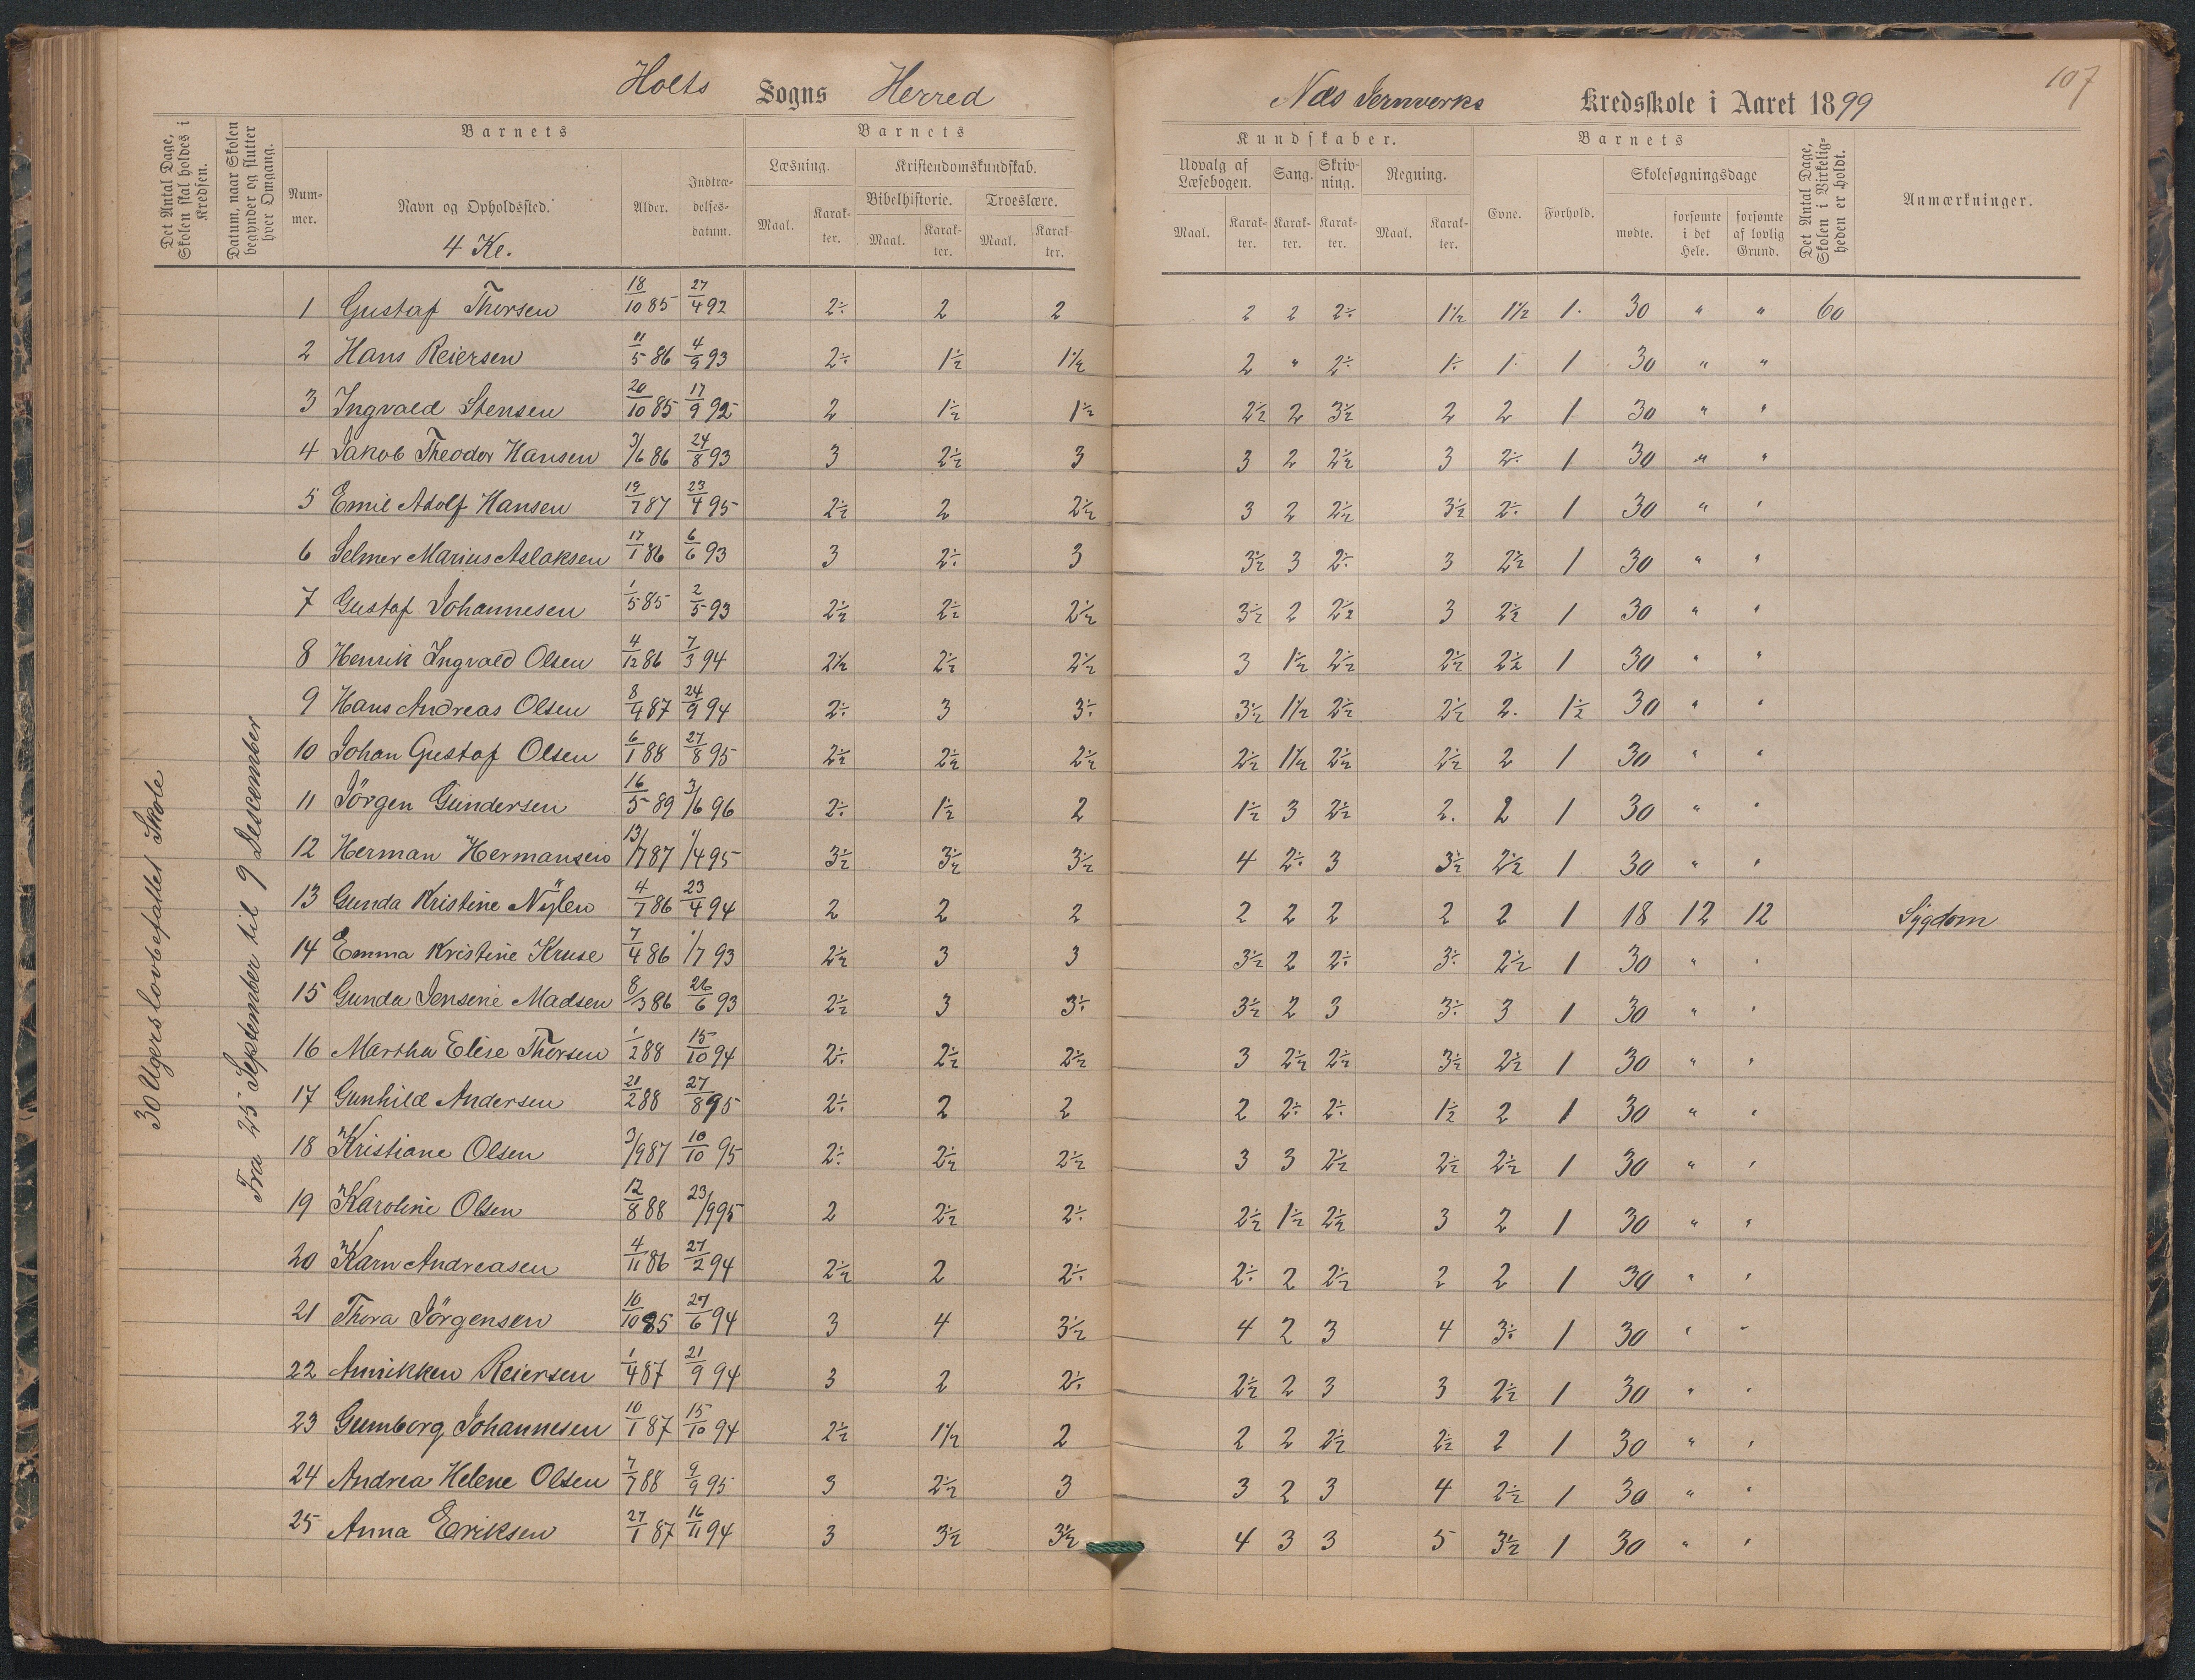 107
Holts Sogns Herred Næs Jernverks Kredsskole i Aaret 1899
Det Antal Dage, Skolen skal holdes i Kredsen.
Datum, naar Skolen begynder og slutter hver Omgang.
Barnets
Num-mer.
Navn og Opholdssted.
4 Kl.
Alder.
Indtræ-delses-datum.
Barnets
Læsning.
Maal.
Karak-ter.
Kristendomskundskab.
Bibelhistorie.
Maal.
Karak-ter.
Troeslære.
Maal.
Karak-ter.
Kundskaber.
Udvalg af Læsebogen.
Maal.
Karak-ter.
Sang.
Karak-ter.
Skriv-ning.
Karak-ter.
Regning.
Maal.
Karak-ter.
Barnets
Evne.
Forhold.
Skolesøgningsdage
mødte.
forsømte i det Hele.
forsømte af lovlig Grund.
Det Antal Dage, Skolen i Virkelig-heden er holdt.
Anmærkninger.
30 Ugers lovbefallet Skole
Fra 25 September til 9 Descember
1 Gustaf Thorsen 18/10 85 27/4 92 2÷ 2 2 2 2 2÷ 1½ 1½ 1 30 " " 60
2 Hans Reiersen 11/5 86 4/9 93 2÷ 1½ 1½ 2 " 2÷ 1÷ 1 1 30 " "
3 Ingvald Stensen 20/10 85 17/9 92 2 1½ 1½ 2½ 2 3½ 2 2 1 30 " "
4 Jakob Theodor Hansen 3/6 86 24/8 93 3 2½ 3 3 2 2½ 3 2÷ 1 30 " "
5 Emil Adolf Hansen 19/7 87 23/4 95 2½ 2 2½ 3 2 2½ 3½ 2÷ 1 30 " "
6 Selmer Marius Aslaksen 17/1 86 6/6 93 3 2÷ 3 3½ 3 2÷ 3 2½ 1 30 " "
7 Gustaf Johannesen 1/5 85 2/5 93 2½ 2½ 2½ 3½ 2 2½ 3 2½ 1 30 " "
8 Henrik Ingvald Olsen 4/12 86 7/3 94 2½ 2½ 2½ 3 1½ 2½ 2½ 2½ 1 30 " "
9 Hans Andreas Olsen 8/4 87 24/9 94 2÷ 3 3÷ 3½ 1½ 2½ 2½ 2. 1½ 30 " "
10 Johan Gustaf Olsen 6/1 88 27/8 95 2½ 2½ 2½ 2½ 1½ 2½ 2½ 2 1 30 " "
11 Jörgen Gundersen 16/5 89 3/6 96 2÷ 1½ 2 1½ 3 2½ 2. 2 1 30 " "
12 Herman Hermansen 13/7 87 1/4 95 3½ 3½ 3½ 4 2÷ 3 3½ 2½ 1 30 " "
13 Gunda Kristine Nÿlen 4/7 86 23/4 94 2 2 2 2 2 2 2 2 1 18 12 12 Sygdom
14 Emma Kristine Kruse 7/4 86 1/7 93 2½ 3 3 3½ 2 2÷ 3÷ 2½ 1 30 " "
15 Gunda Jensine Madsen 8/3 86 26/6 93 2½ 3 3÷ 3½ 2 3 3÷ 3 1 30 " "
16 Martha Elise Thorsen 1/2 88 15/10 94 2÷ 2½ 2½ 3 2½ 2½ 3½ 2½ 1 30 " "
17 Gunhild Andersen 21/2 88 27/8 95 2÷ 2 2 2 2÷ 2÷ 1½ 2 1 30 " "
18 Kristiane Olsen 3/9 87 10/10 95 2÷ 2½ 2½ 3 3 2½ 2½ 2½ 1 30 " "
19 Karoline Olsen 12/8 88 23/9 95 2 2½ 2÷ 2½ 1½ 2½ 3 2 1 30 " "
20 Karn Andreasen 4/11 86 27/2 94 2½ 2 2÷ 2÷ 2 2½ 2 2 1 30 " "
21 Thora Jörgensen 10/10 85 27/6 94 3 4 3½ 4 2 3 4 3÷ 1 30 " "
22 Annikken Reiersen 1/4 87 21/9 94 3 2 2÷ 2½ 2 3 3 2½ 1 30 " "
23 Gumborg Johannesen 10/1 87 15/10 94 2½ 1½ 2 2 2 2½ 2½ 2 1 30 " "
24 Andrea Helene Olsen 7/7 88 9/9 95 3 2½ 3 3 2 3 4 2½ 1 30 " "
25 Anna Eriksen 27/1 87 16/11 94 3 3½ 3½ 4 3 3 5 3½ 1 30 " "